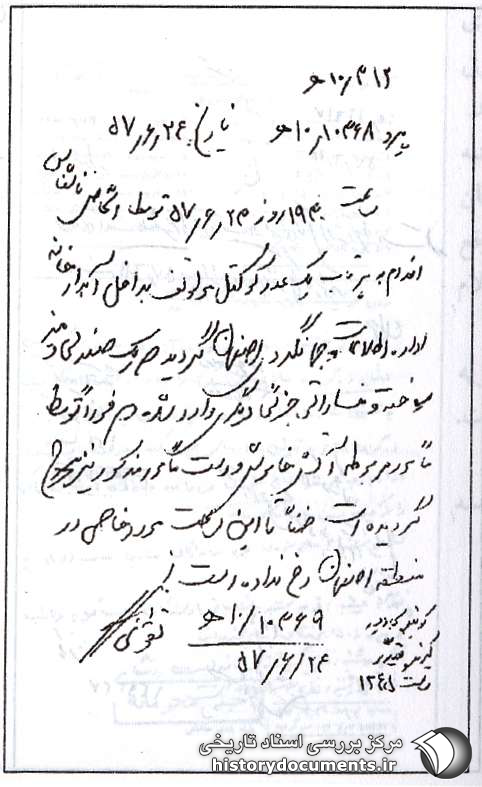 ۳۱۲/ ۱۰ هـ
پیرو ۱۰۳۶۸/ ۱۰ هـ تاریخ: ۵۷/۶/۲۴
ساعت ۱۹۳۰ روز ۵۷/۶/۲۳ توسط اشخاص ناشناس
اقدام به پرتاب یک عدد کوکتل مولوتف بداخل آبدارخانه
اداره اطلاعات و جهانگردی اصفهان گردیده که یک صندلی و میز
سوخته و خسارات جزئی دیگری وارد شده که فوراً توسط
مامور مربوطه آتش خاموش و دست مامور مذکور نیز مجروح
گردیده است ضمناً تا این ساعت مورد خاصی در
منطقه اصفهان رخ نداده است.
۱۰۳۶۹/ ۱۰ هـ تقوی
۵۷/۶/۲۴
گوینده
گیرنده
ساعت ۱۲۴۵
مرکز بررسی اسناد تاریخی
historydocuments.ir